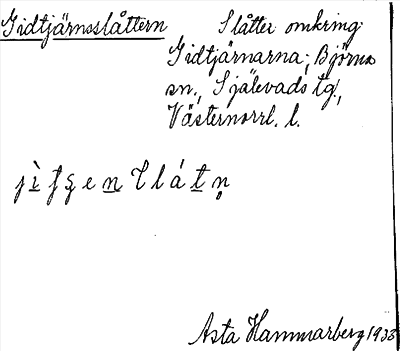 Gidtjärnsslåttern Slåtter omkring
Gidtjärnarna; Björna
sn., Själevads tg.,
Västernorrl. l.
Asta Hammarberg 1933